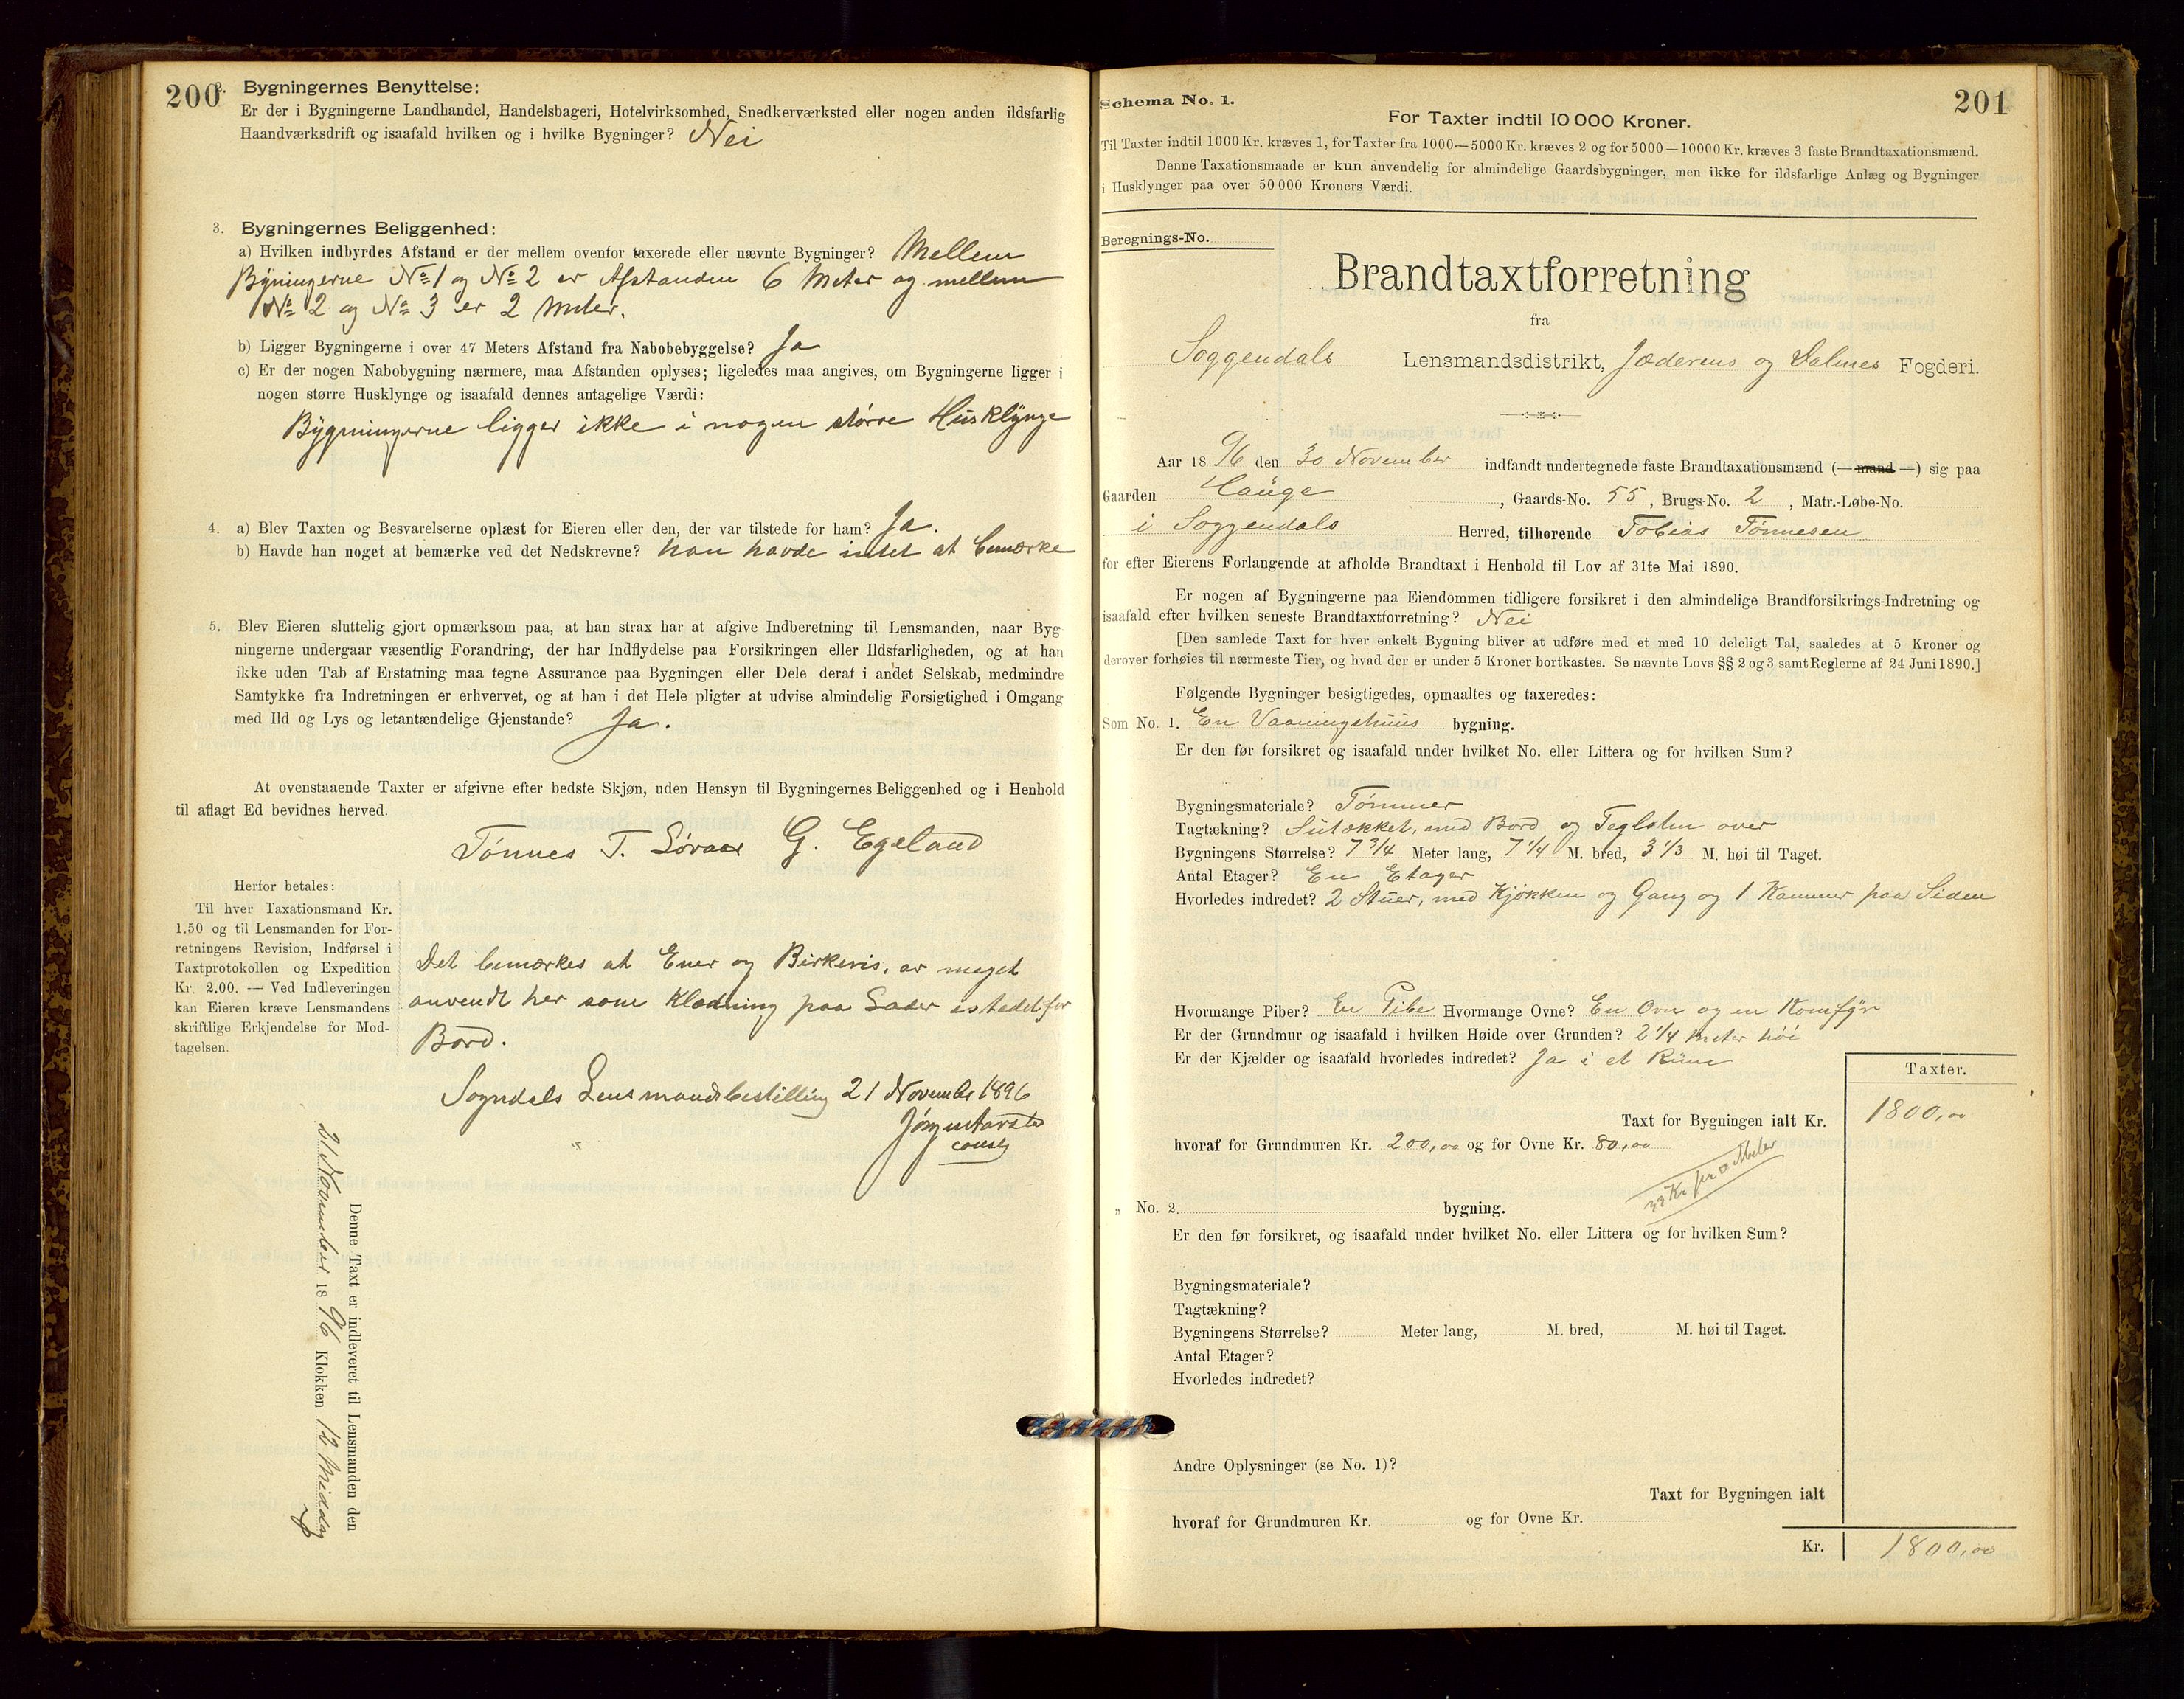 200
2. Bygningernes Benyttelse:
Er der i Bygningerne Landhandel, Handelsbageri, Hotelvirksomhed, Snedkerværksted eller nogen anden ildsfarlig
Haandværksdrift og isaafald hvilken og i hvilke Bygninger? Nei
3. Bygningernes Beliggenhed:
a) Hvilken indbyrdes Afstand er der mellem ovenfor taxerede eller nævnte Bygninger? Mellem
Bygningerne No 1 og No 2 er Afstanden 6 Meter og mellem
No 2 og No 3 er 2 Meter.
b) Ligger Bygningerne i over 47 Meters Afstand fra Nabobebyggelse? Ja
c) Er der nogen Nabobygning nærmere, maa Afstanden oplyses; ligeledes maa angives, om Bygningerne ligger i
nogen større Husklynge og isaafald dennes antagelige Værdi:
Bygningerne ligger ikke i nogen større Husklynge
4. a) Blev Taxten og Besvarelserne oplæst for Eieren eller den, der var tilstede for ham? Ja.
b) Havde han noget at bemærke ved det Nedskrevne? han havde intet at bemærke
5. Blev Eieren sluttelig gjort opmærksom paa, at han strax har at afgive Indberetning til Lensmanden, naar Byg-
ningerne undergaar væsentlig Forandring, der har Indflydelse paa Forsikringen eller Ildsfarligheden, og at han
ikke uden Tab af Erstatning maa tegne Assurance paa Bygningen eller Dele deraf i andet Selskab, medmindre
Samtykke fra Indretningen er erhvervet, og at han i det Hele pligter at udvise almindelig Forsigtighed i Omgang
med Ild og Lys og letantændelige Gjenstande? Ja.
At ovenstaaende Taxter er afgivne efter bedste Skjøn, uden Hensyn til Bygningernes Beliggenhed og i Henhold
til aflagt Ed bevidnes herved.
Tønnes T. Søraas G. Egeland
Herfor betales:
Til hver Taxationsmand Kr.
1.50 og til Lensmanden for For-
retningens Revision, Indførsel i
Taxtprotokollen og Expedition
Kr. 2.00. — Ved Indleveringen
kan Eieren kræve Lensmandens
skriftlige Erkjendelse for Mod-
tagelsen.
Det bemærkes at Ener og Birkeris, er meget
anvendt her som Klædning paa Lader istedetfor
Bord.
Sogndals Lensmandsbestilling 21 November 1896
const
Denne Taxt er indleveret til Lensmanden den
21 November 1896 Klokken 12 Middag
Schema No. 1.
201
For Taxter indtil 10 000 Kroner.
Til Taxter indtil 1000 Kr. kræves 1, for Taxter fra 1000—5000 Kr. kræves 2 og for 5000—10000 Kr. kræves 3 faste Brandtaxationsmænd.
Denne Taxationsmaade er kun anvendelig for almindelige Gaardsbygninger, men ikke for ildsfarlige Anlæg og Bygninger
i Husklynger paa over 50 000 Kroners Værdi.
Beregnings-No.
Brandtaxtforretning
fra
Soggendals Lensmandsdistrikt, Jæderens og Dalenes Fogderi.
Aar 1896 den 30 November indfandt undertegnede faste Brandtaxationsmænd (—mand—) sig paa
Gaarden Hauge, Gaards-No. 55, Brugs-No. 2, Matr.-Løbe-No.
i Soggendals Herred, tilhørende Tobias Tønnesen
for efter Eierens Forlangende at afholde Brandtaxt i Henhold til Lov af 31te Mai 1890.
Er nogen af Bygningerne paa Eiendommen tidligere forsikret i den almindelige Brandforsikrings-Indretning og
isaafald efter hvilken seneste Brandtaxtforretning? Nei
[Den samlede Taxt for hver enkelt Bygning bliver at udføre med et med 10 deleligt Tal, saaledes at 5 Kroner og
derover forhøies til nærmeste Tier, og hvad der er under 5 Kroner bortkastes. Se nævnte Lovs §§ 2 og 3 samt Reglerne af 24 Juni 1890.]
Følgende Bygninger besigtigedes, opmaaltes og taxeredes:
Som No. 1. En Vaaningshuus bygning.
Er den før forsikret og isaafald under hvilket No. eller Littera og for hvilken Sum?
Bygningsmateriale? Tømmer
Tagtækning? Sutækket, med Bord og Teglsten over
Bygningens Størrelse? 7 3/4 Meter lang, 7 1/4 M. bred, 3 1/3 M. høi til Taget.
Antal Etager? En Etager
Hvorledes indredet? 2 Stuer, med Kjøkken og Gang og 1 Kammer paa Siden
Hvormange Piber? En Pibe Hvormange Ovne? En Ovn og en Komfyr
Er der Grundmur og isaafald i hvilken Høide over Grunden? 2 1/4 Meter høi
Er der Kjælder og isaafald hvorledes indredet? Ja i et Rum
Taxter.
Taxt for Bygningen ialt Kr. 1800,00
hvoraf for Grundmuren Kr. 200,00 og for Ovne Kr. 80,00
33 Kr per □ Meter
„ No. 2. bygning.
Er den før forsikret, og isaafald under hvilket No. eller Littera og for hvilken Sum?
Bygningsmateriale?
Tagtækning?
Bygningens Størrelse? Meter lang, M. bred, M. høi til Taget.
Antal Etager?
Hvorledes indredet?
Andre Oplysninger (se No. 1)?
Taxt for Bygningen ialt
hvoraf for Grundmuren Kr. og for Ovne Kr.
Kr. 1800,00